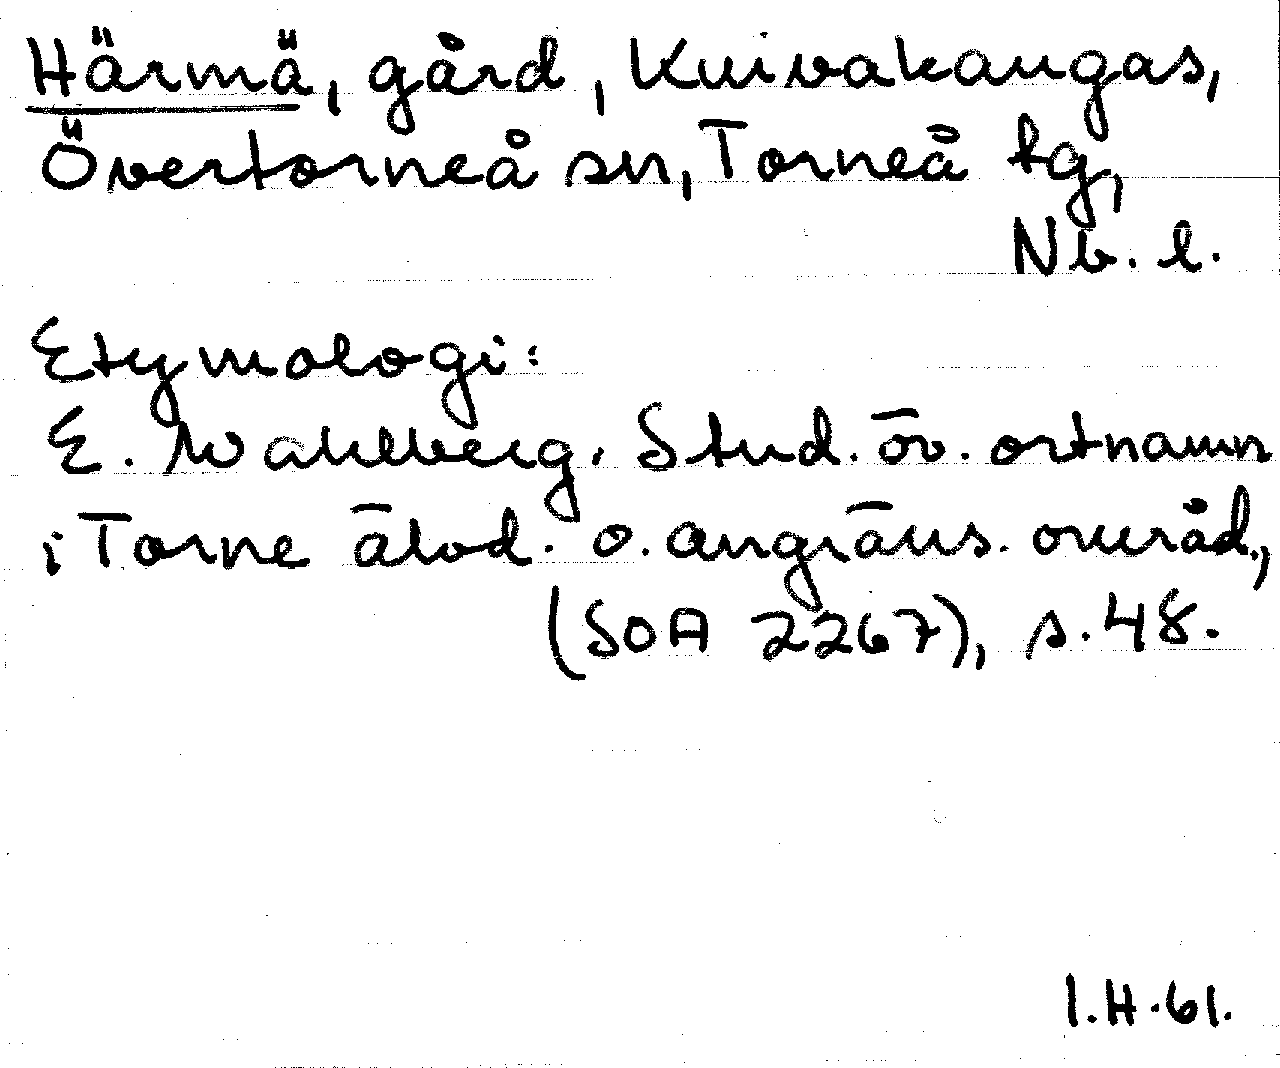 Härmä, gård, Kuivakangas,
Övertorneå sn, Torneå tg,
Nb. l.
Etymologi:
E. Wahlberg. Stud. öv. ortnamn
i Torne älvd. o. angräns. områd.,
(SOA 2267), s. 48.
I.H.61.